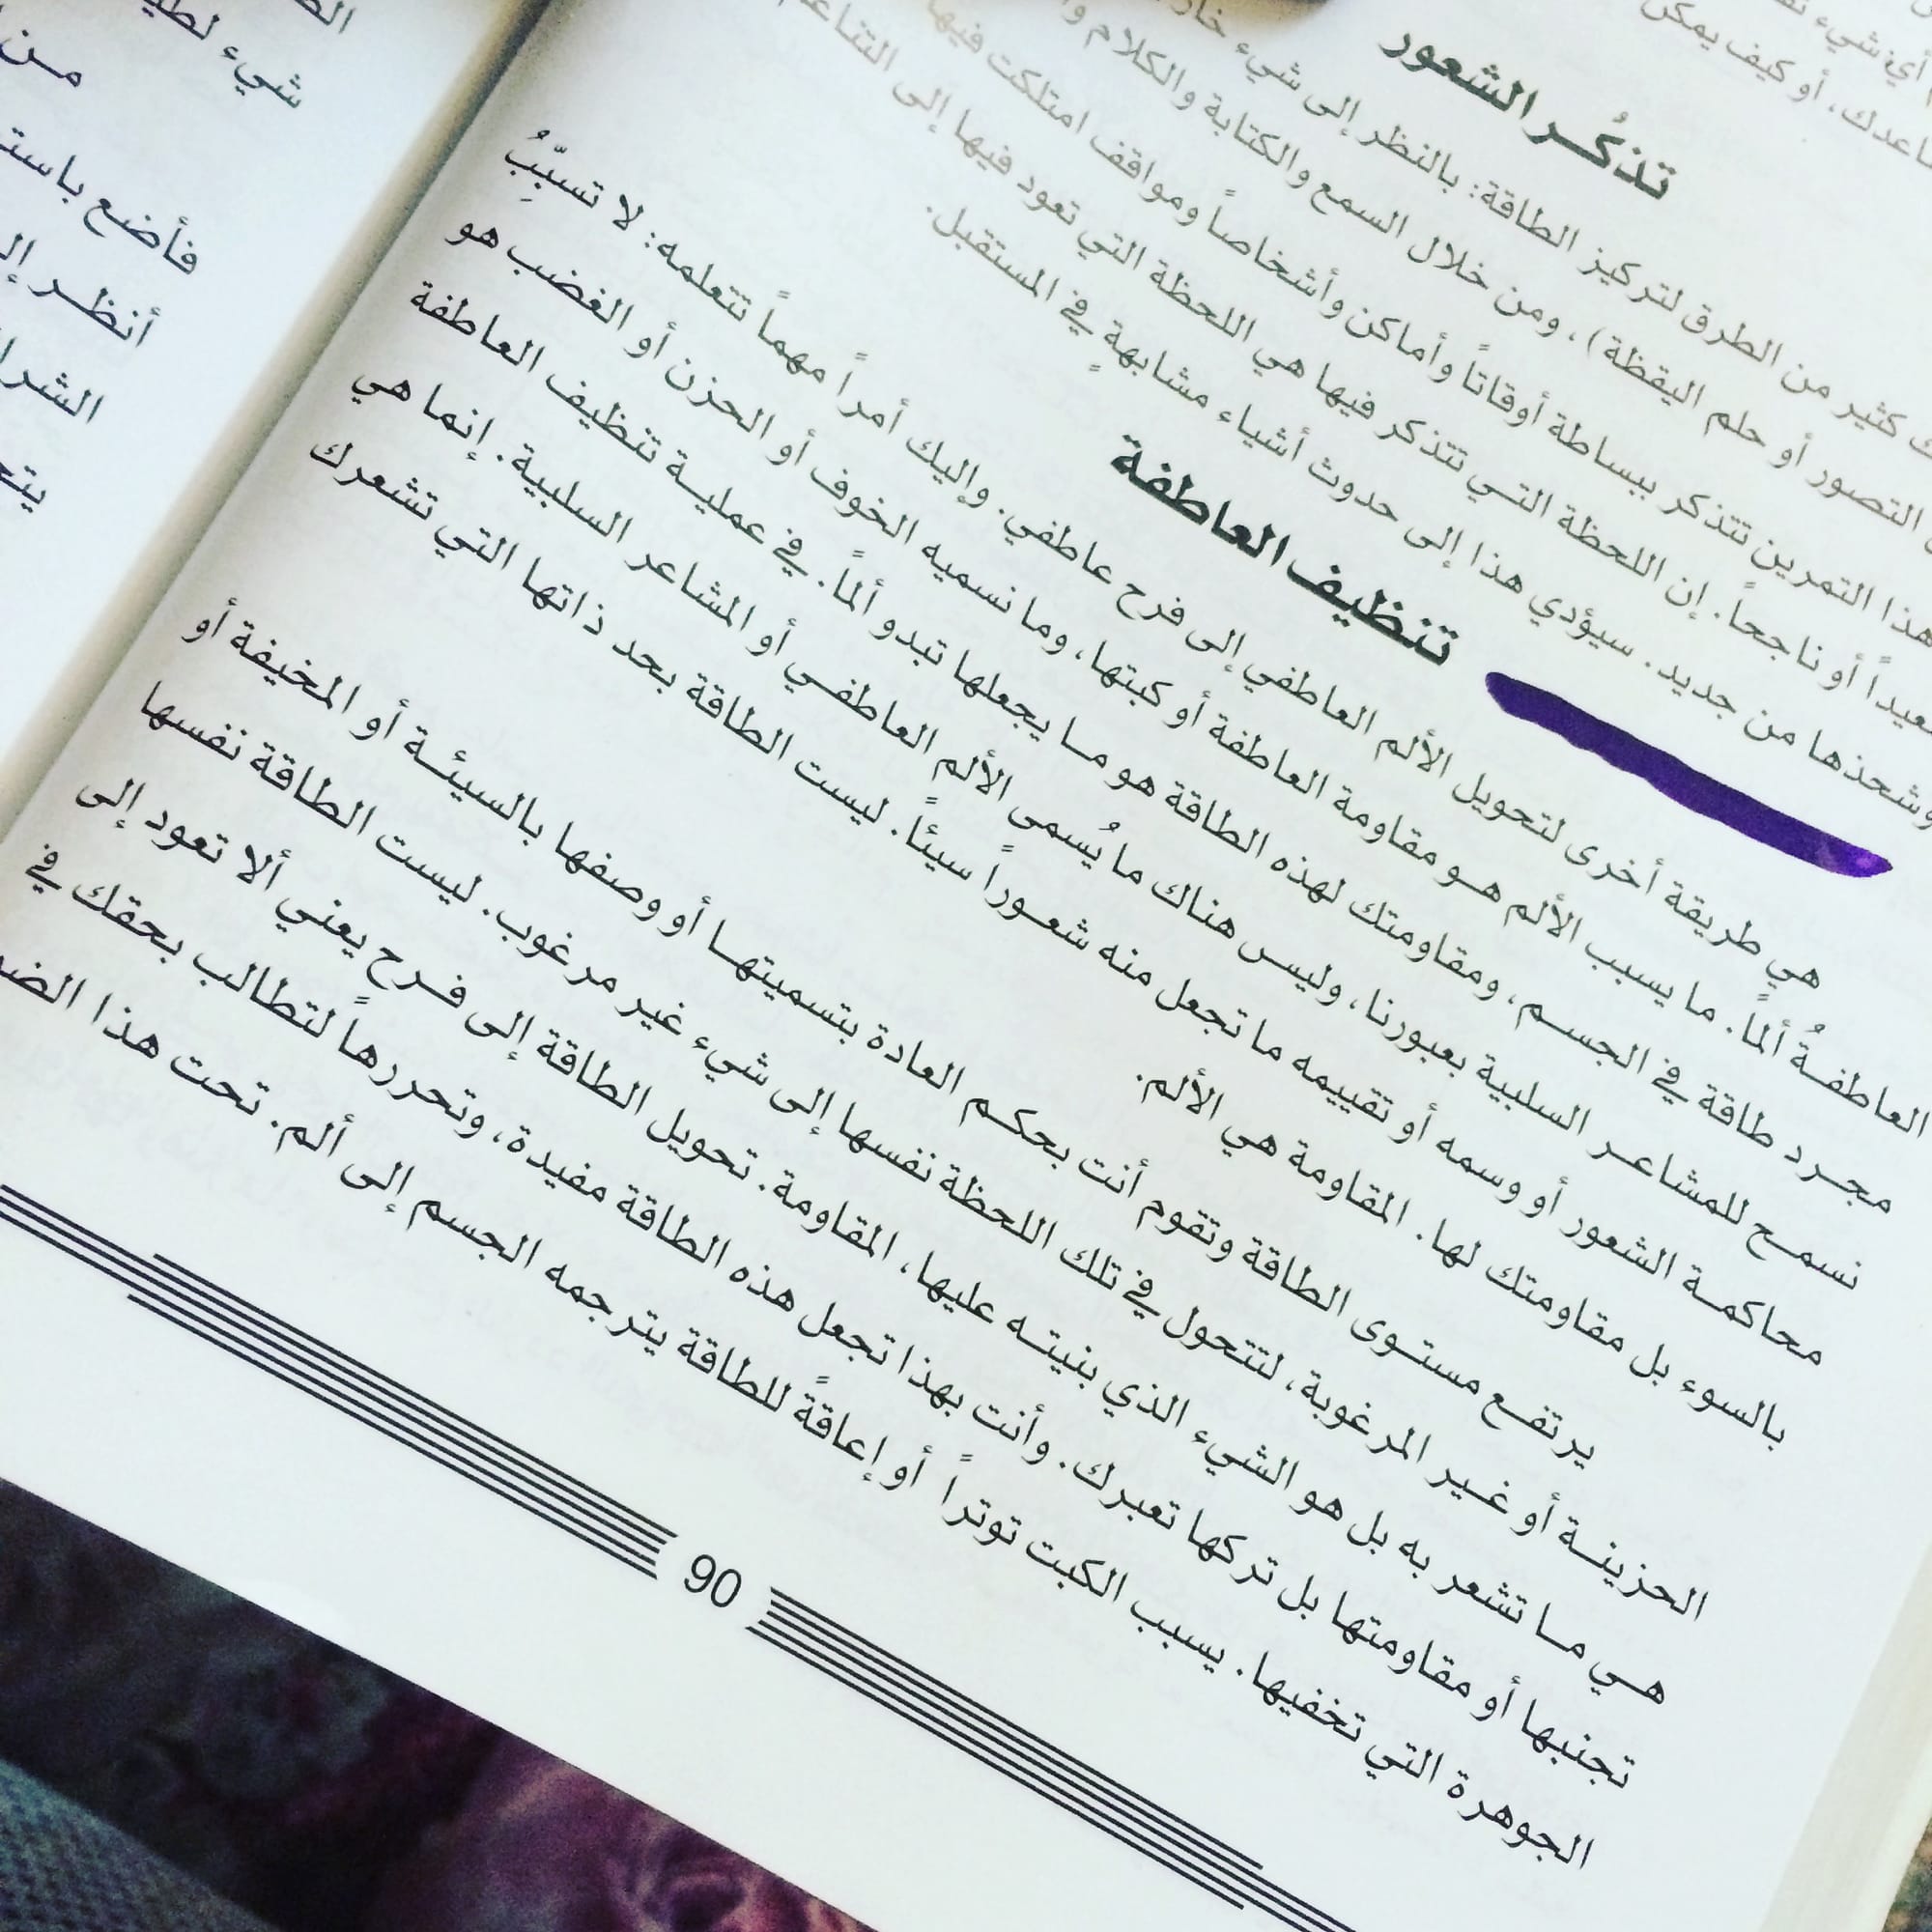 أي شيء
اعدك، أو كيف يمكن
تذكُّر الشعور
كثير من الطرق لتركيز الطاقة: بالنظر إلى شيء
التصور أو حلم اليقظة)، ومن خلال السمع والكتابة والكلام
هذا التمرين تتذكر ببساطة أوقاتاً وأماكن وأشخاصاً ومواقف امتلكت فيها
أو ناجحاً. إن اللحظة التي تتذكر فيها هي اللحظة التي تعود فيها إلى
وشحذها من جديد. سيؤدي هذا إلى حدوث أشياء مشابهة في المستقبل.
تنظيف العاطفة
هي طريقة أخرى لتحويل الألم العاطفي إلى فرح عاطفي. وإليك أمراً مهماً تتعلمه: لا تسبِّبُ
العاطفةُ ألماً. ما يسبب الألم هو مقاومة العاطفة أو كبتها، وما نسميه الخوف أو الحزن أو الغضب هو
مجرد طاقة في الجسم، ومقاومتك لهذه الطاقة هو ما يجعلها تبدو ألماً. في عملية تنظيف العاطفة
نسمح للمشاعر السلبية بعبورنا، وليس هناك ما يُسمى الألم العاطفي أو المشاعر السلبية. إنما هي
محاكمة الشعور أو وسمه أو تقييمه ما تجعل منه شعوراً سيئاً. ليست الطاقة بحد ذاتها التي تشعرك
بالسوء بل مقاومتك لها. المقاومة هي الألم.
يرتفع مستوى الطاقة وتقوم أنت بحكم العادة بتسميتها أو وصفها بالسيئة أو المخيفة أو
الحزينة أو غير المرغوبة، لتتحول في تلك اللحظة نفسها إلى شيء غير مرغوب. ليست الطاقة نفسها
هي ما تشعر به بل هو الشيء الذي بنيته عليها، المقاومة. تحويل الطاقة إلى فرح يعني ألا تعود إلى
تجنبها أو مقاومتها بل تركها تعبرك. وأنت بهذا تجعل هذه الطاقة مفيدة، وتحررها لتطالب بحقك في
الجوهرة التي تخفيها. يسبب الكبت توتراً أو إعاقةً للطاقة يترجمه الجسم إلى ألم. تحت هذا
90
شيء
من
فأضع
أنظر